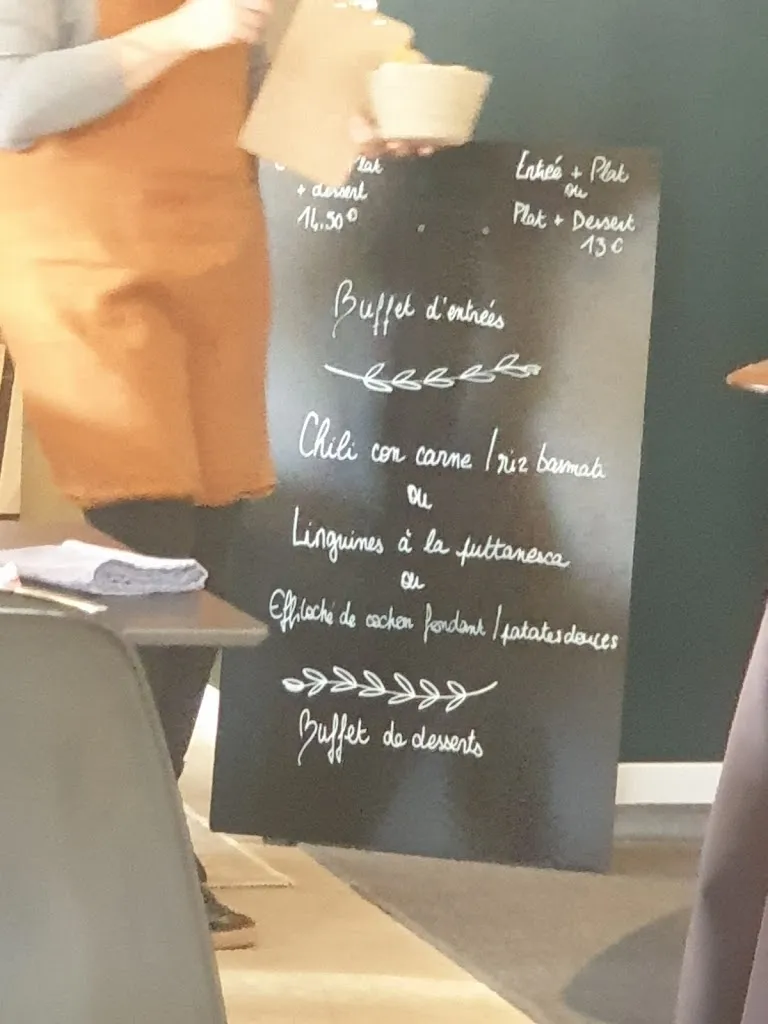 Plat
+ dessert
14.50€
Entrée + Plat
ou
Plat + Dessert
13€
Buffet d'entrées
Chili con carne / riz basmati
ou
Linguines à la puttanesca
ou
Effiloché de cochon fondant / patates douces
Buffet de desserts